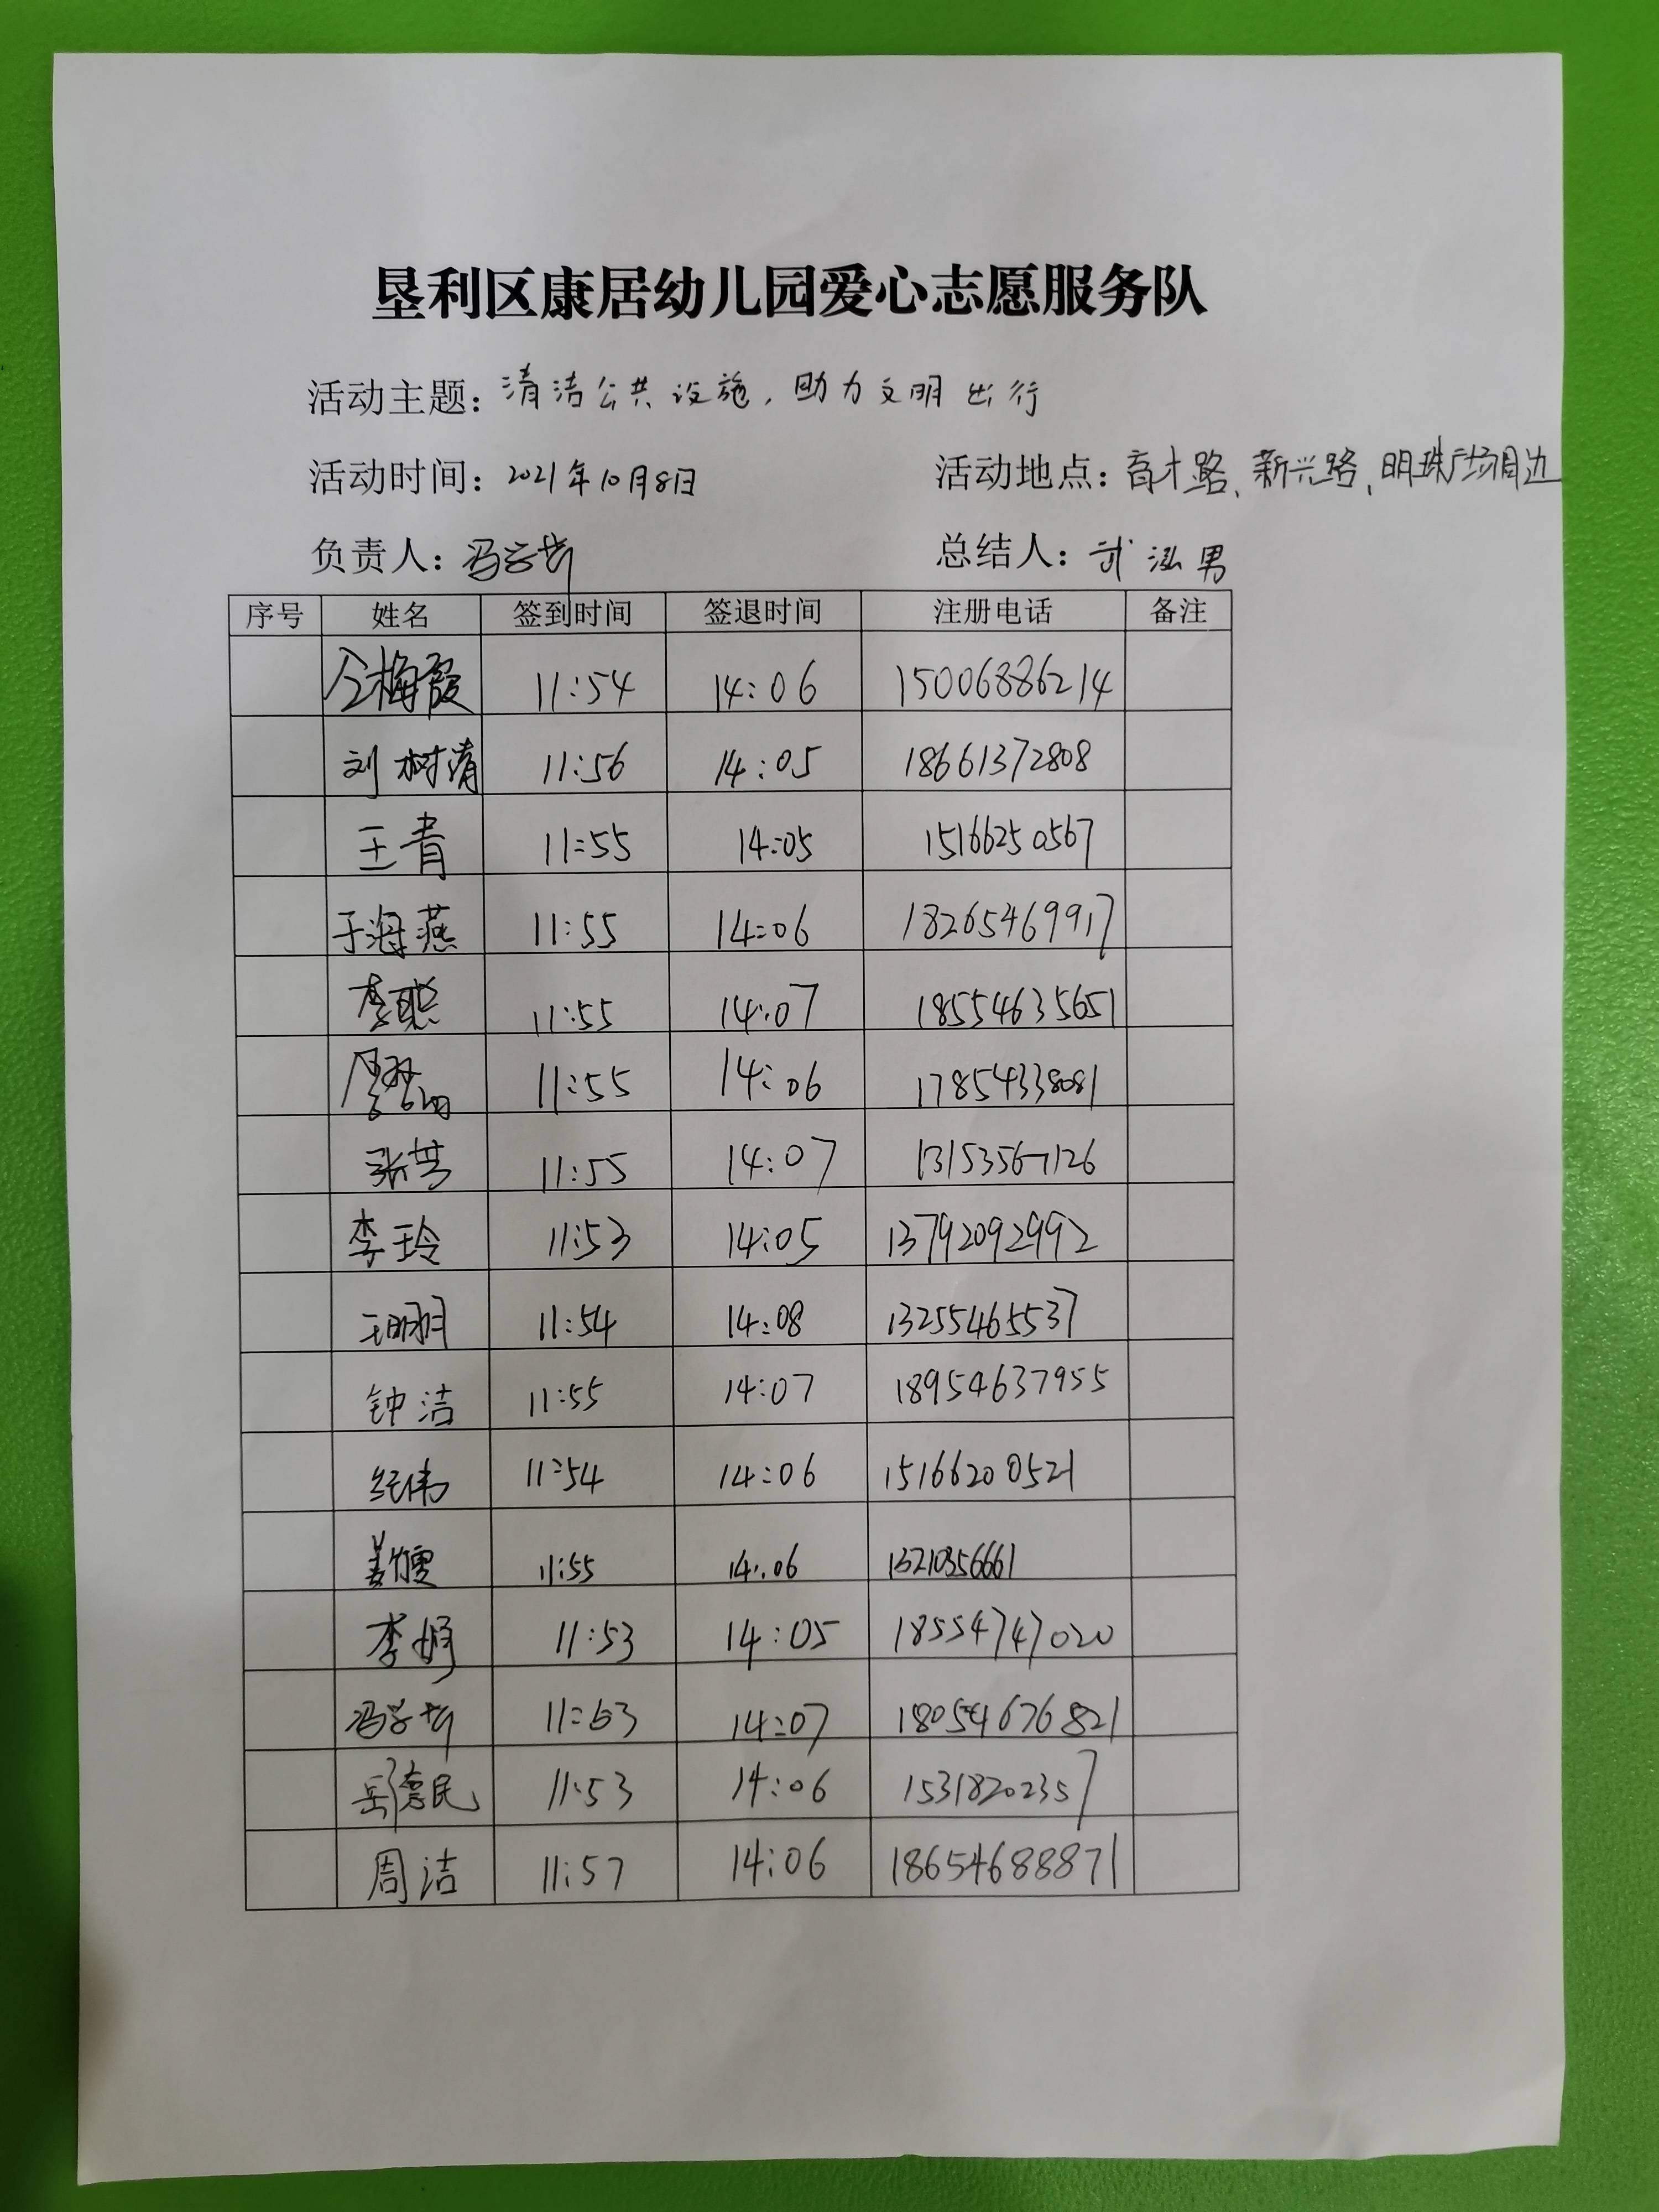 垦利区康居幼儿园爱心志愿服务队
活动主题：清洁公共设施，助力文明出行
活动时间：2021年10月8日 活动地点：育才路、新兴路、明珠广场周边
负责人：冯学哲 总结人：武泓男
序号 姓名 签到时间 签退时间 注册电话 备注
仝梅霞 11:54 14:06 15006886214
刘树清 11:56 14:05 18661372808
王青 11:55 14:05 15166250567
于海燕 11:55 14:06 18265469917
李聪 11:55 14:07 18554635651
11:55 14:06 17854338081
张芳 11:55 14:07 13153567126
李玲 11:53 14:05 13792092992
王明月 11:54 14:08 13255465537
钟洁 11:55 14:07 18954637955
纪伟 11:54 14:06 15166200521
姜雪 11:55 14:06 13210356661
李娉 11:53 14:05 18554747020
冯学哲 11:53 14:07 18054676821
岳德民 11:53 14:06 15318202357
周洁 11:57 14:06 18654688871